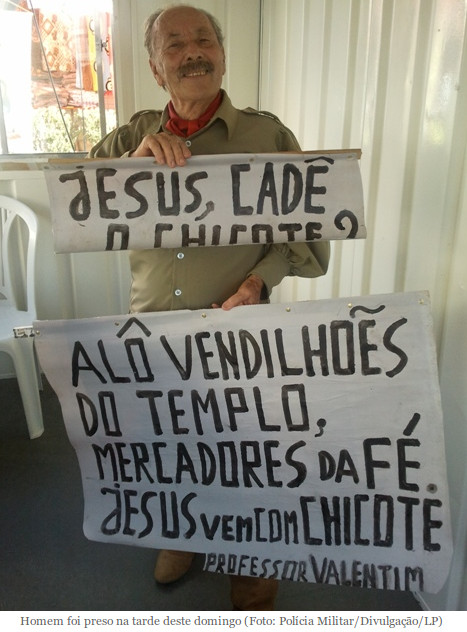 JESUS, CADÊ
O CHICOTE?
ALÔ VENDILHOẼS
DO TEMPLO,
MERCADORES DA FÉ.
JESUS VEM COM CHICOTE
PROFESSOR VALENTIM
Homem foi preso na tarde deste domingo (Foto: Polícia Militar/Divulgação/LP)